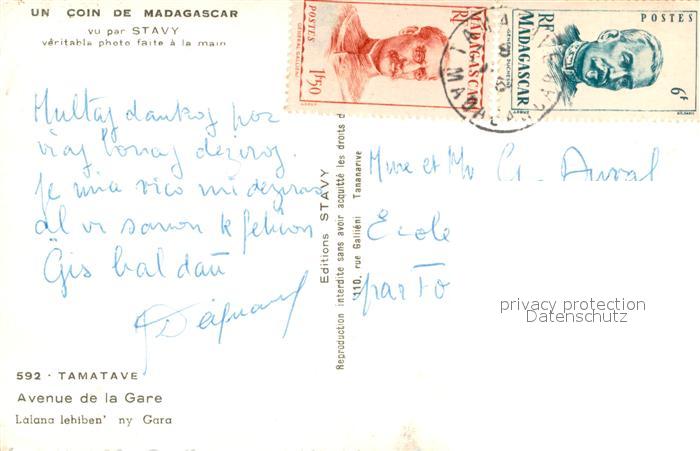 UN COIN DE MADAGASCAR
vu par STAVY
véritable photo faite à la main
POSTES
RF
MADAGASCAR
GENERAL GALLIENI
1F50
RF
POSTES
MADAGASCAR
GENERAL DUCHESNE
6F
Multaj dankoj por
viaj bonaj deziroj.
Je mia vico mi deziras
al vi sanon k feliĉon
Ĝis baldaŭ
592 - TAMATAVE
Avenue de la Gare
Lalana lehiben' ny Gara
Editions STAVY
110, rue Galliéni Tananarive
Reproduction interdite sans avoir acquitté les droits d
Mme et Mr G. Duval
Ecole
par Fo
privacy protection
Datenschutz